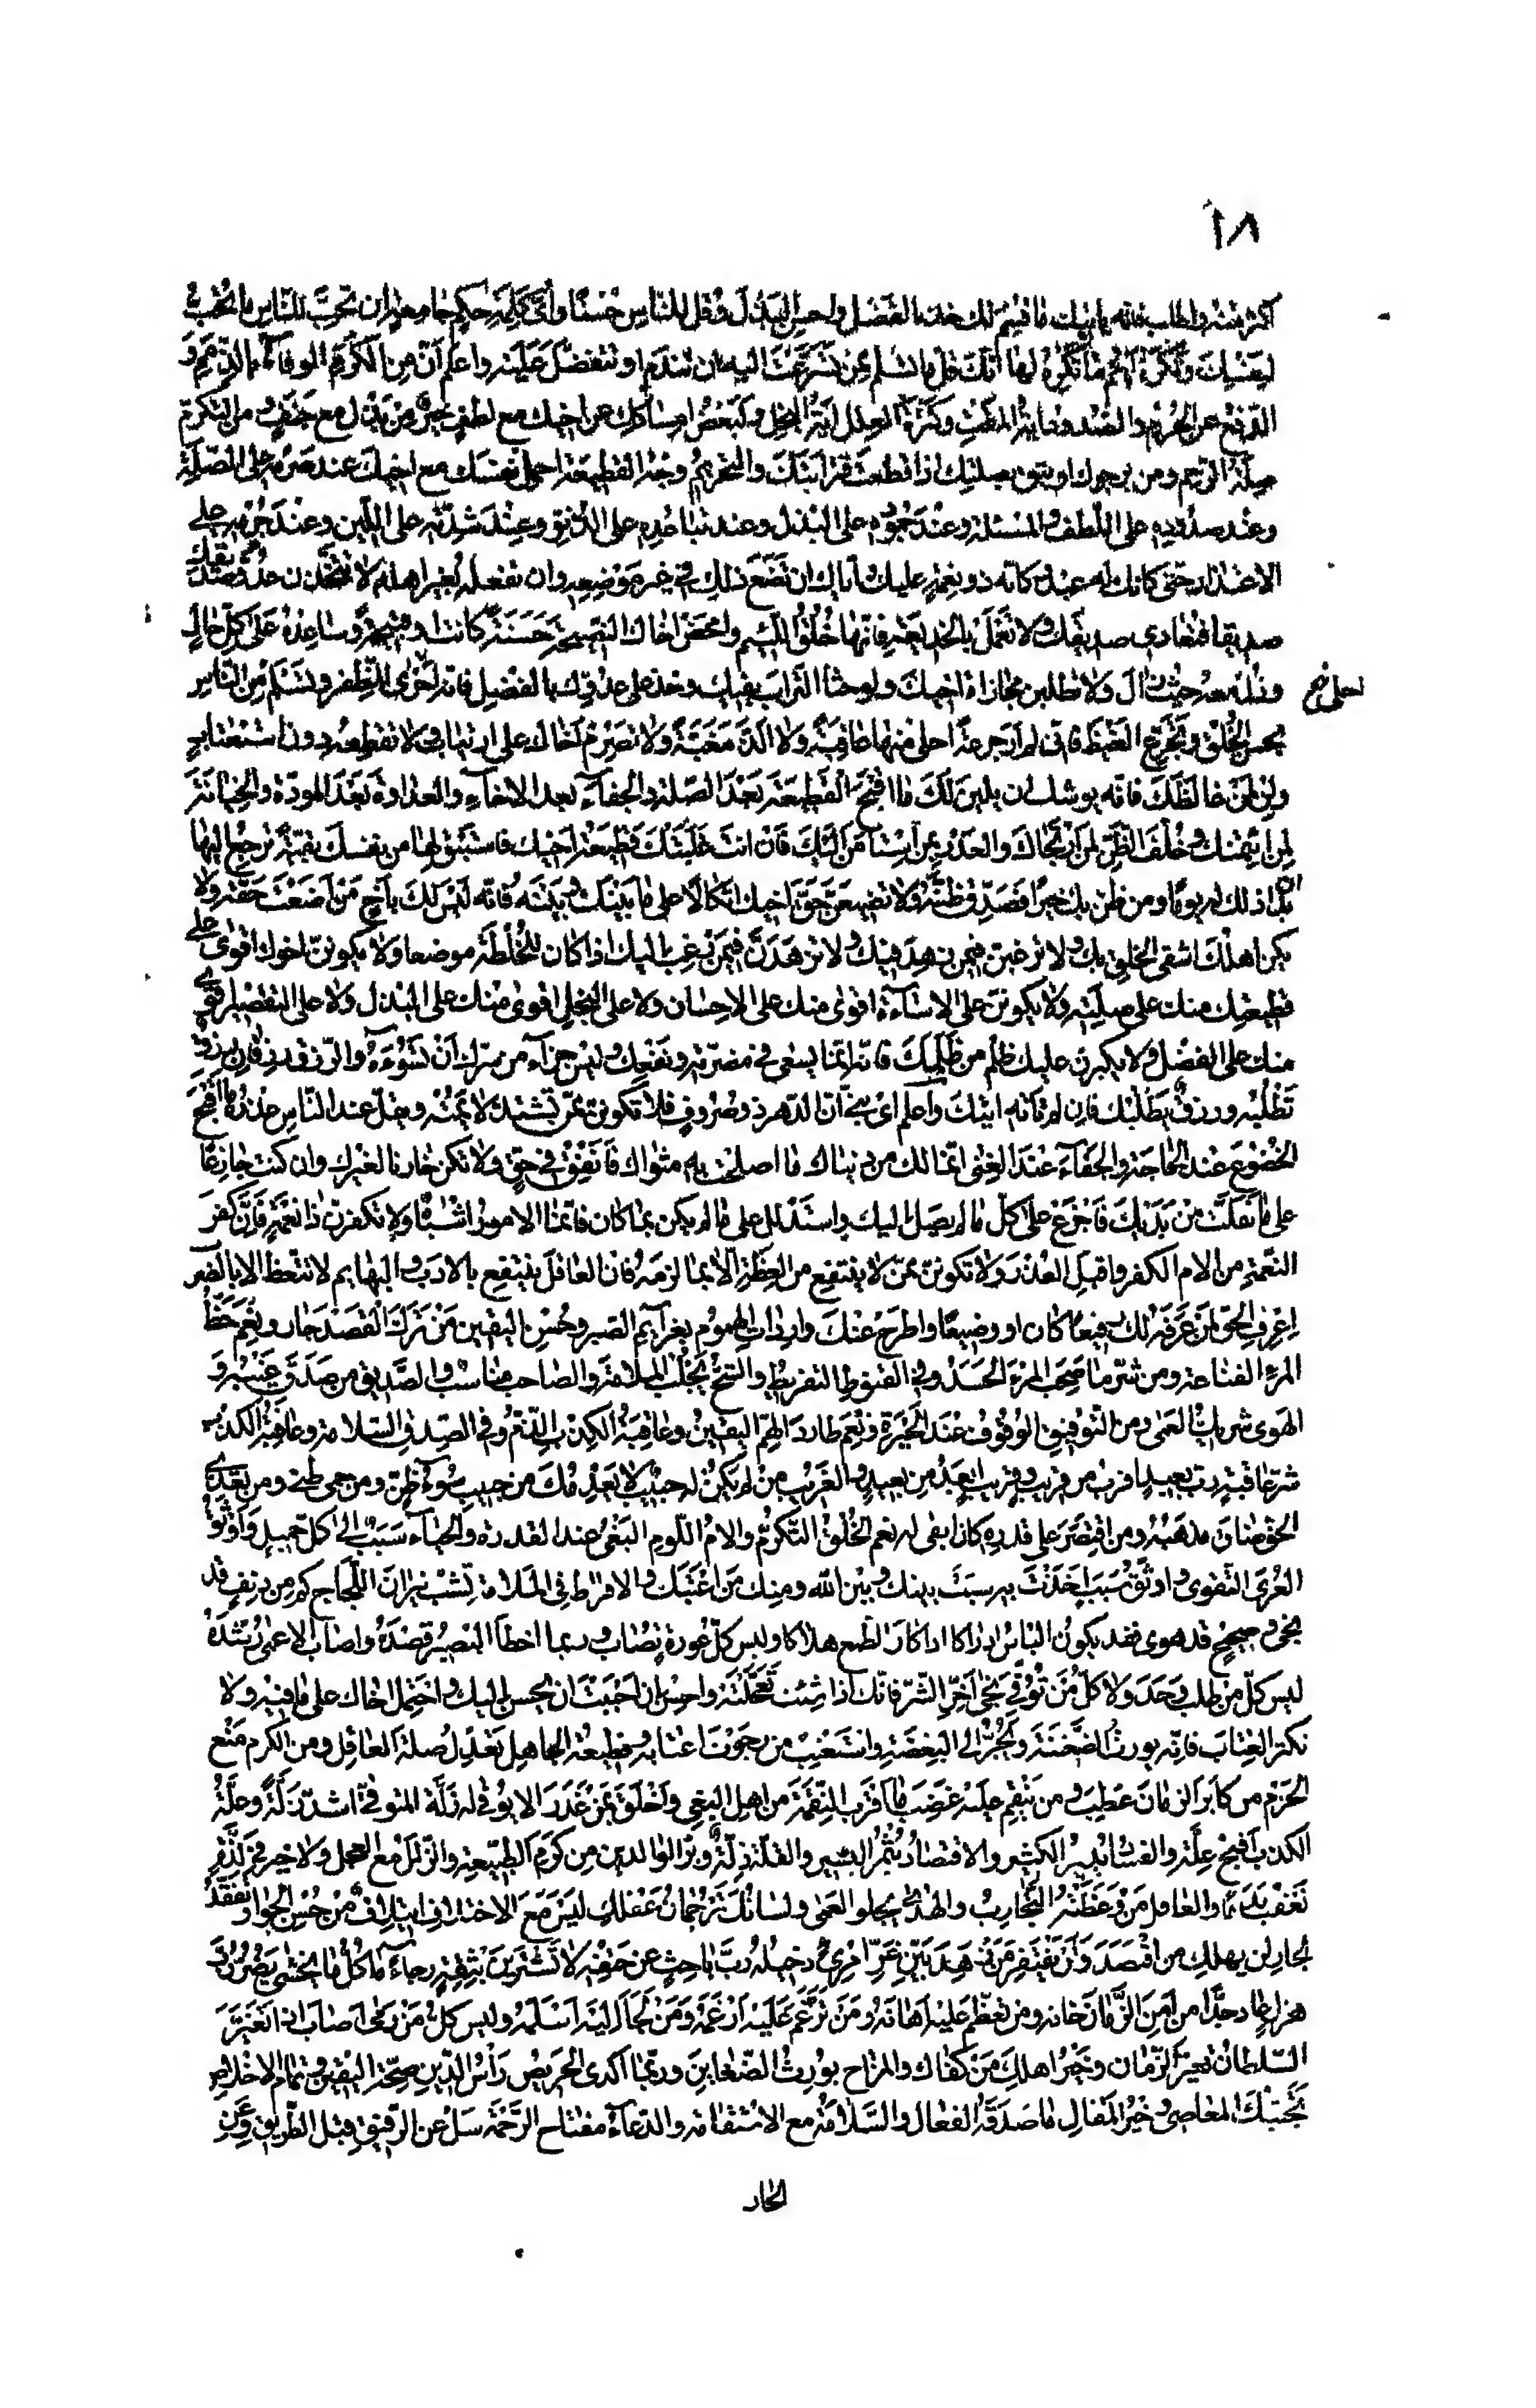 ٦٨
اكثر منه واطلب فانه ياتيك ما قسم لك خذ بالفضل واحسن البذل وقل للناس حسنا واى كلمة حكم جامعة ان تحب للناس ما تحب
لنفسك وتكره لهم ما تكره لها انك قل ما تسلم ممن تسرعت اليه ان تندم او تتفضل عليه واعلم ان من الكرم الوفاء بالذمم و
الدفع عن الحرم والصدود اية المقت وكثرة العلل اية البخل ولبعض امساكك عن اخيك مع لطف خير من بذل مع جنف ومن التكرم
صلة الرحم ومن يرجوك او يثق بصلتك اذا قطعت قرابتك والتحريم وجه القطيعة احمل نفسك مع اخيك عند صرمه على الصلة
وعند صدوده على اللطف والمسئلة وعند جموده على البذل وعند تباعده على الدنو وعند شدته على اللين وعند جرمه على
الاعتذار حتى كانك له عبد وكانه ذو نعمة عليك واياك ان تضع ذلك في غير موضعه وان تفعله بغير اهله لا تتخذن عدو صديقك
صديقا فتعادى صديقك ولا تعمل بالخديعة فانها خلق اللئيم وامحض اخاك النصيحة حسنة كانت او قبيحة وساعده على كل حال
وزل معه حيث زال ولا تطلبن مجازاة اخيك ولو حثا التراب بفيك وخذ على عدوك بالفضل فانه احرى للظفر وتسلم من الناس
بحسن الخلق وتجرع الغيظ فانى لم ار جرعة احلى منها عاقبة ولا الذ مغبة ولا تصرم اخاك على ارتياب ولا تقطعه دون استعتاب
ولن لمن غالظك فانه يوشك ان يلين لك ما اقبح القطيعة بعد الصلة والجفاء بعد الاخاء والعداوة بعد المودة والخيانة
لمن ائتمنك وخلف الظن لمن ارتجاك والغدر بمن استامن اليك فان انت غلبتك قطيعة اخيك فاستبق لها من نفسك بقية ترجع اليها
ان بدا ذلك له يوما ومن ظن بك خيرا فصدق ظنه ولا تضيعن حق اخيك اتكالا على ما بينك وبينه فانه ليس لك باخ من اضعت حقه ولا
يكن اهلك اشقى الخلق بك ولا ترغبن فيمن زهد فيك ولا تزهدن فيمن رغب اليك اذا كان للخلطة موضعا ولا يكونن اخوك اقوى على
قطيعتك منك على صلته ولا يكونن على الاساءة اقوى منك على الاحسان ولا على البخل اقوى منك على البذل ولا على التقصير اقوى
منك على الفضل ولا يكبرن عليك ظلم من ظلمك فانه انما يسعى في مضرته ونفعك وليس جزاء من سرك ان تسوءه والرزق رزقان رزق
تطلبه ورزق يطلبك فان لم تاته اتيك واعلم اى بنى ان الدهر ذو صروف فلا تكونن ممن تشتد لائمته ويقل عند الناس عذره ما اقبح
الخضوع عند الحاجة والجفاء عند الغنى انما لك من دنياك ما اصلحت به مثواك فانفق في حق ولا تكن خازنا لغيرك وان كنت جازعا
على ما تفلت من يديك فاجزع على كل ما لم يصل اليك واستدلل على ما لم يكن بما كان فانما الامور اشباه ولا تكفرن ذا نعمة فان كفر
النعمة من الام الكفر واقبل العذر ولا تكونن ممن لا ينتفع من العظة الا بما لزمه فان العاقل ينتفع بالادب والبهايم لا تتعظ الا بالضرب
اعرف الحق لمن عرفه لك رفيعا كان او وضيعا واطرح عنك واردات الهموم بعزآيم الصبر وحسن اليقين من ترك القصد جار ونعم حظ
المرء القناعة ومن شر ما صحب المرء الحسد وفي القنوط التفريط والشح يجلب الملامة والصاحب مناسب والصديق من صدق غيبه و
الهوى شريك العمى ومن التوفيق الوقوف عند الحيرة ونعم طارد الهم اليقين وعاقبة الكذب الذم وفي الصدق السلامة وعاقبة الكذب
شر عاقبة رب بعيد اقرب من قريب وقريب ابعد من بعيد والغريب من لم يكن له حبيب لا يعدمك من حبيب سوء ظن ومن حمى طنى ومن تعدى
الحق ضاق مذهبه ومن اقتصر على قدره كان ابقى له نعم الخلق التكرم والام اللوم البغى عند القدرة والحياء سبب الى كل جميل واوثق
العرى التقوى واوثق سبب اخذت به سبب بينك وبين الله ومنك من اعتبك والافراط في الملامة تشب نيران اللجاج كم من دنف قد
نجى وصحيح قد هوى فقد يكون الياس ادراكا اذا كان الطمع هلاكا وليس كل عورة تصاب وربما اخطأ البصير قصده واصاب الاعمى رشده
ليس كل من طلب وجد ولا كل من توقى نجى اخر الشر فانك اذا شئت تعجلته واحسن ان احببت ان يحسن اليك واحتمل اخاك على ما فيه ولا
تكثر العتاب فانه يورث الضغينة ويجر الى البغضة واستعتب من رجوت اعتابه وقطيعة الجاهل تعدل صلة العاقل ومن الكرم منع
الحزم من كابر الزمان عطب ومن ينقم عليه غضب ما اقرب النقمة من اهل البغى واخلق بمن غدر الا يوفى له زلة المتوقى اشد زلة وعلة
الكذب اقبح علة والفساد يبير الكثير والاقتصاد يثمر اليسير والقلة ذلة وبر الوالدين من كرم الطبيعة والزلل مع العجل ولا خير في لذة
تعقب ندما والعاقل من وعظته التجارب والهدى يجلو العمى ولسانك ترجمان عقلك ليس مع الاختلاف ايتلاف من حسن الجوار تفقد
الجار لن يهلك من اقتصد ولن يفتقر من زهد بين عن امرئ دخيله رب باحث عن حتفه لا تشترين بثقة رجاء ما كل ما يخشى يضر رب
هزل عاد جدا من امن الزمان خانه ومن تعظم عليه اهانه ومن ترغم عليه ارغمه ومن لجأ اليه اسلمه وليس كل من رمى اصاب اذا تغير
السلطان تغير الزمان وخير اهلك من كفاك والمزاح يورث الضغاين وربما اكدى الحريص راس الدين صحة اليقين وتمام الاخلاص
تجنبك المعاصى وخير المقال ما صدقه الفعال والسلامة مع الاستقامة والدعاء مفتاح الرحمة سل عن الرفيق قبل الطريق وعن
الجار